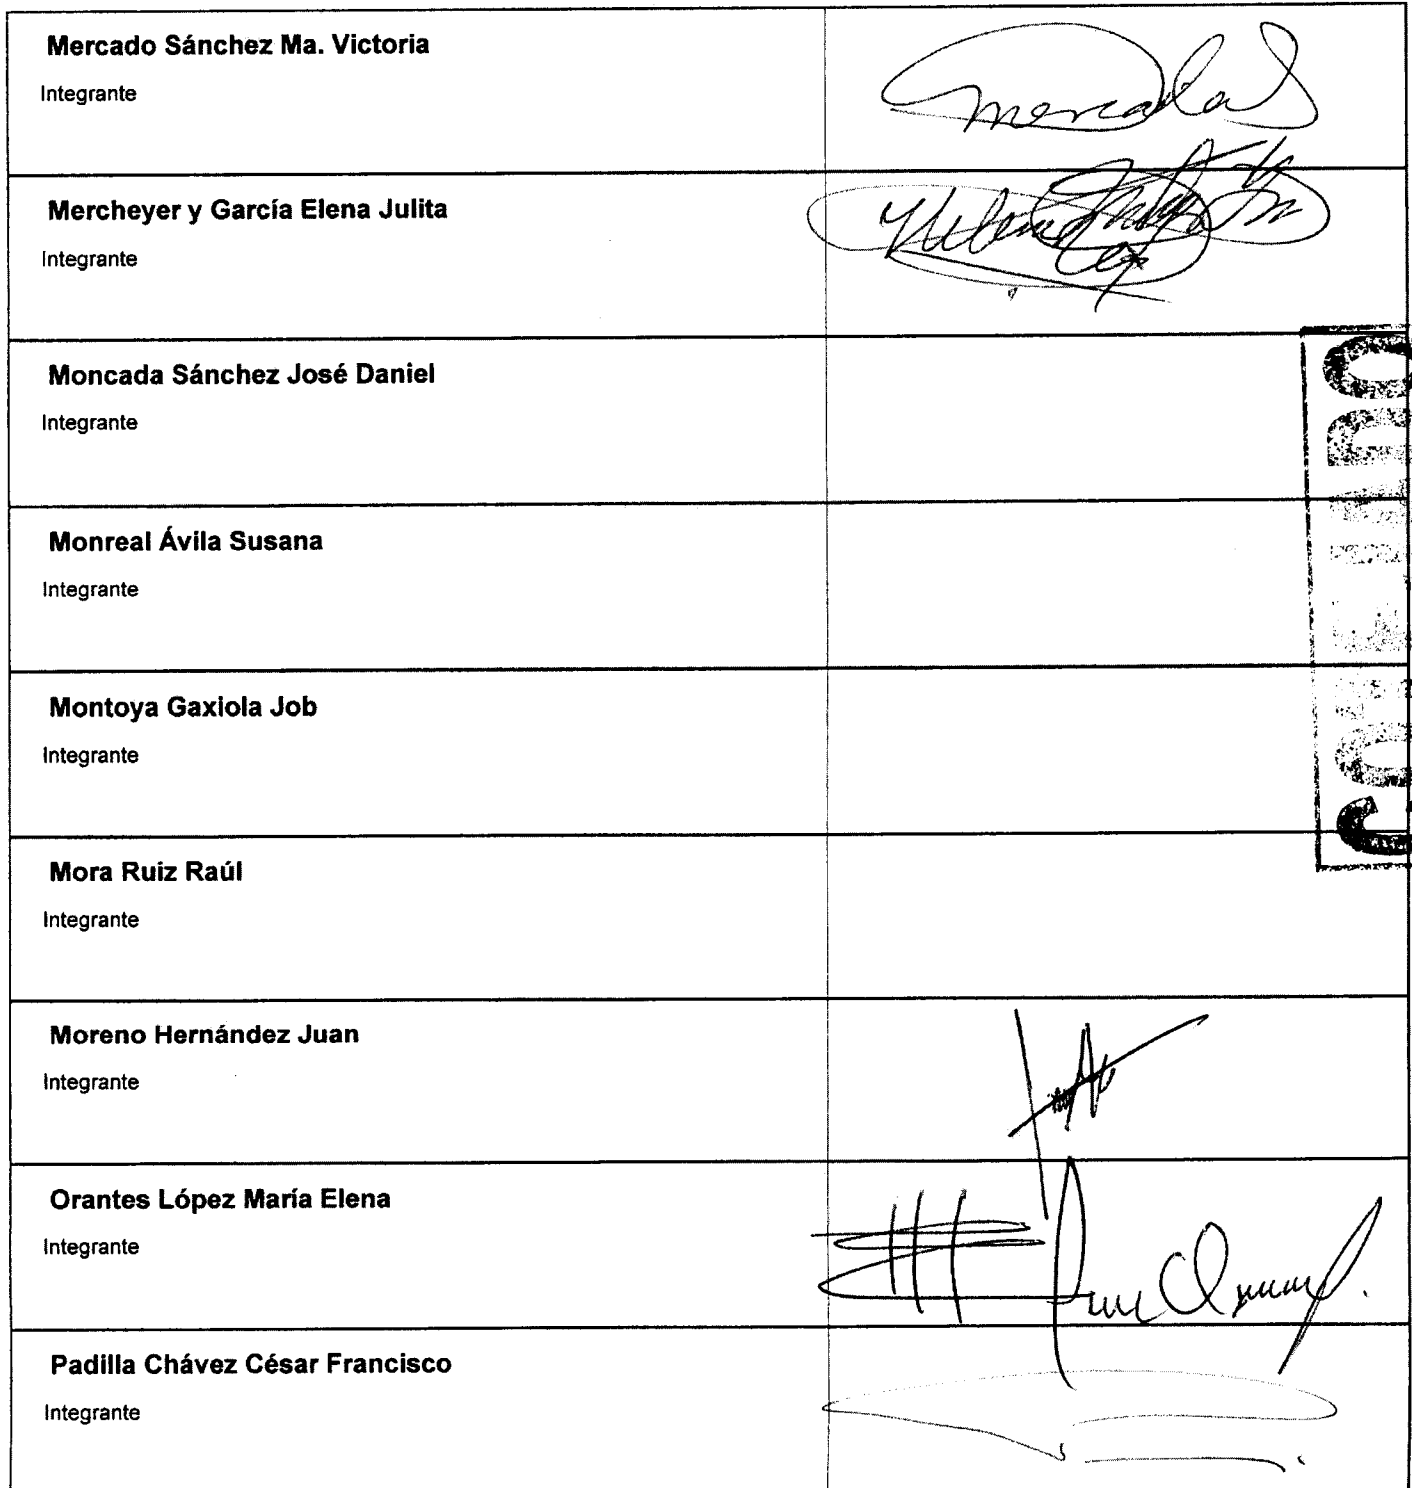 Mercado Sánchez Ma. Victoria
Integrante
Mercheyer y García Elena Julita
Integrante
Moncada Sánchez José Daniel
Integrante
Monreal Ávila Susana
Integrante
Montoya Gaxiola Job
Integrante
Mora Ruiz Raúl
Integrante
Moreno Hernández Juan
Integrante
Orantes López María Elena
Integrante
Padilla Chávez César Francisco
Integrante